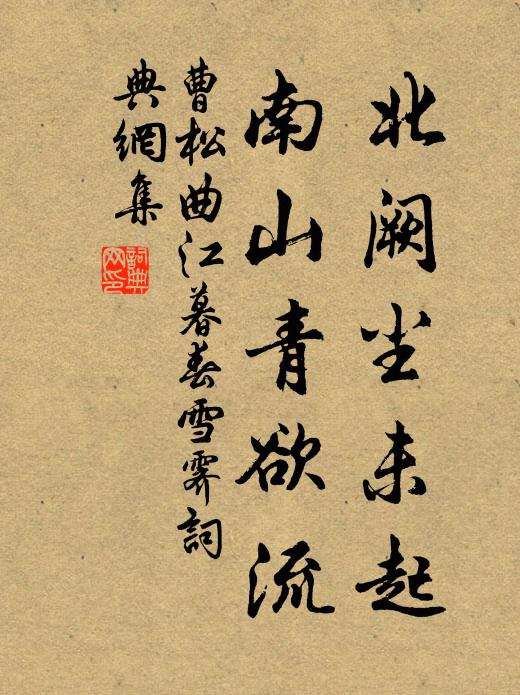 北阙尘未起
南山青欲流
曹松曲江暮春雪霁詞
典網集
詞典网印